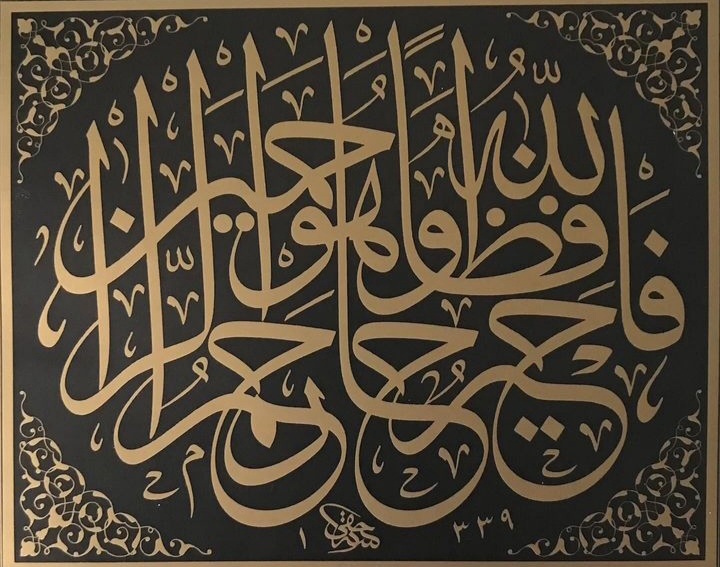 فالله خير حافظا وهو ارحم الراحمين
١٣٣٩